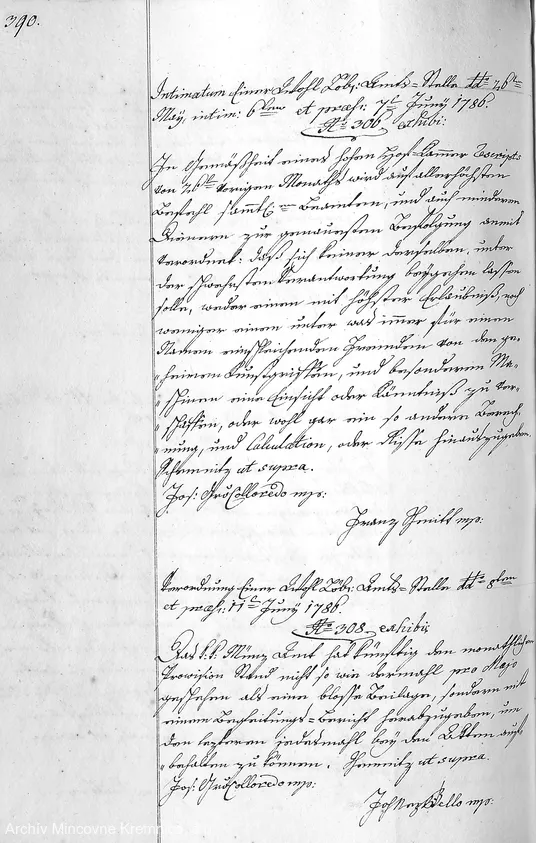 390.
Intimatum Einer Wohl Löbl: Amts=Stelle ddto 26ten
May, intim: 6ten et præs: 7t Juny 1786.
No 306 exhibi:
In Gemäßheit eines hohen Hof=Kammer Rescripts
von 26ten vorigen Monaths wird auf allerhöchsten
Befehl sammtl: Beamten, und auch mindern
Dienern zur genauesten Befolgung anmit
verordnet: daß sich keiner derselben, unter
der schwersten Verantwortung beygehen lassen
solle, weder einen mit höchster Erlaubniß, noch
weniger einen unter was immer für einen
Namen einschleichenden Fremden von den ge-
heimen Kunstgriffen, und besonderen Ma-
schinen eine Einsicht oder Känntniß zu ver-
schaffen, oder wohl gar ein so andere Berech-
nung, und Calculation, oder Risse hinauszugeben.
Schemnitz ut supra.
Jos: Gr: Colloredo mp:
Franz Schmitt mp:
Verordnung Einer Wohl Löbl: Amts=Stelle ddto 8ten
et præs: 11t Juny 1786.
No 308. exhibi:
Das k: k: Münz Amt hat künftig den monathlichen
Provision Stand nicht so wie dermahl pro Majo
geschehen als eine blosse Beilage, sondern mit
einem Begleitungs=Bericht herabzugeben, um
den lezteren jedesmahl bey den Akten auf-
behalten zu können. Schemnitz ut supra.
Jos: Gr: Colloredo mp:
mp:
Archív Mincovne Kremnica